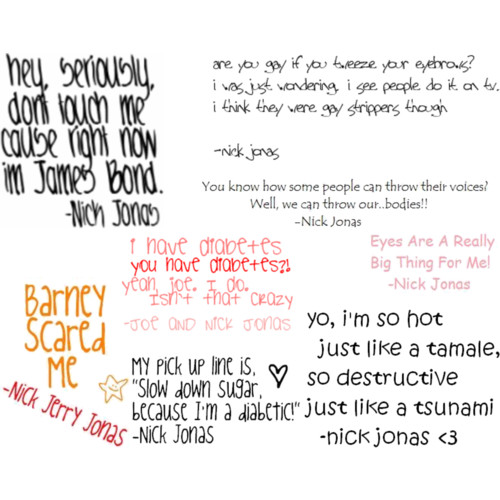 hey, seriously,
dont touch me
cause right now
im James Bond.
-Nick Jonas
are you gay if you tweeze your eyebrows?
i was just wondering. i see people do it on tv.
i think they were gay strippers though
-nick jonas
You know how some people can throw their voices?
Well, we can throw our..bodies!!
-Nick Jonas
i have diabetes
you have diabetes?!
yeah, joe. I do.
Isn't that crazy
-Joe and Nick Jonas
Eyes Are A Really
Big Thing For Me!
-Nick Jonas
Barney
Scared
Me
-Nick Jerry Jonas
My pick up line is,
"Slow down sugar,
because I'm a diabetic!"
-Nick Jonas
yo, i'm so hot
just like a tamale,
so destructive
just like a tsunami
-nick jonas <3